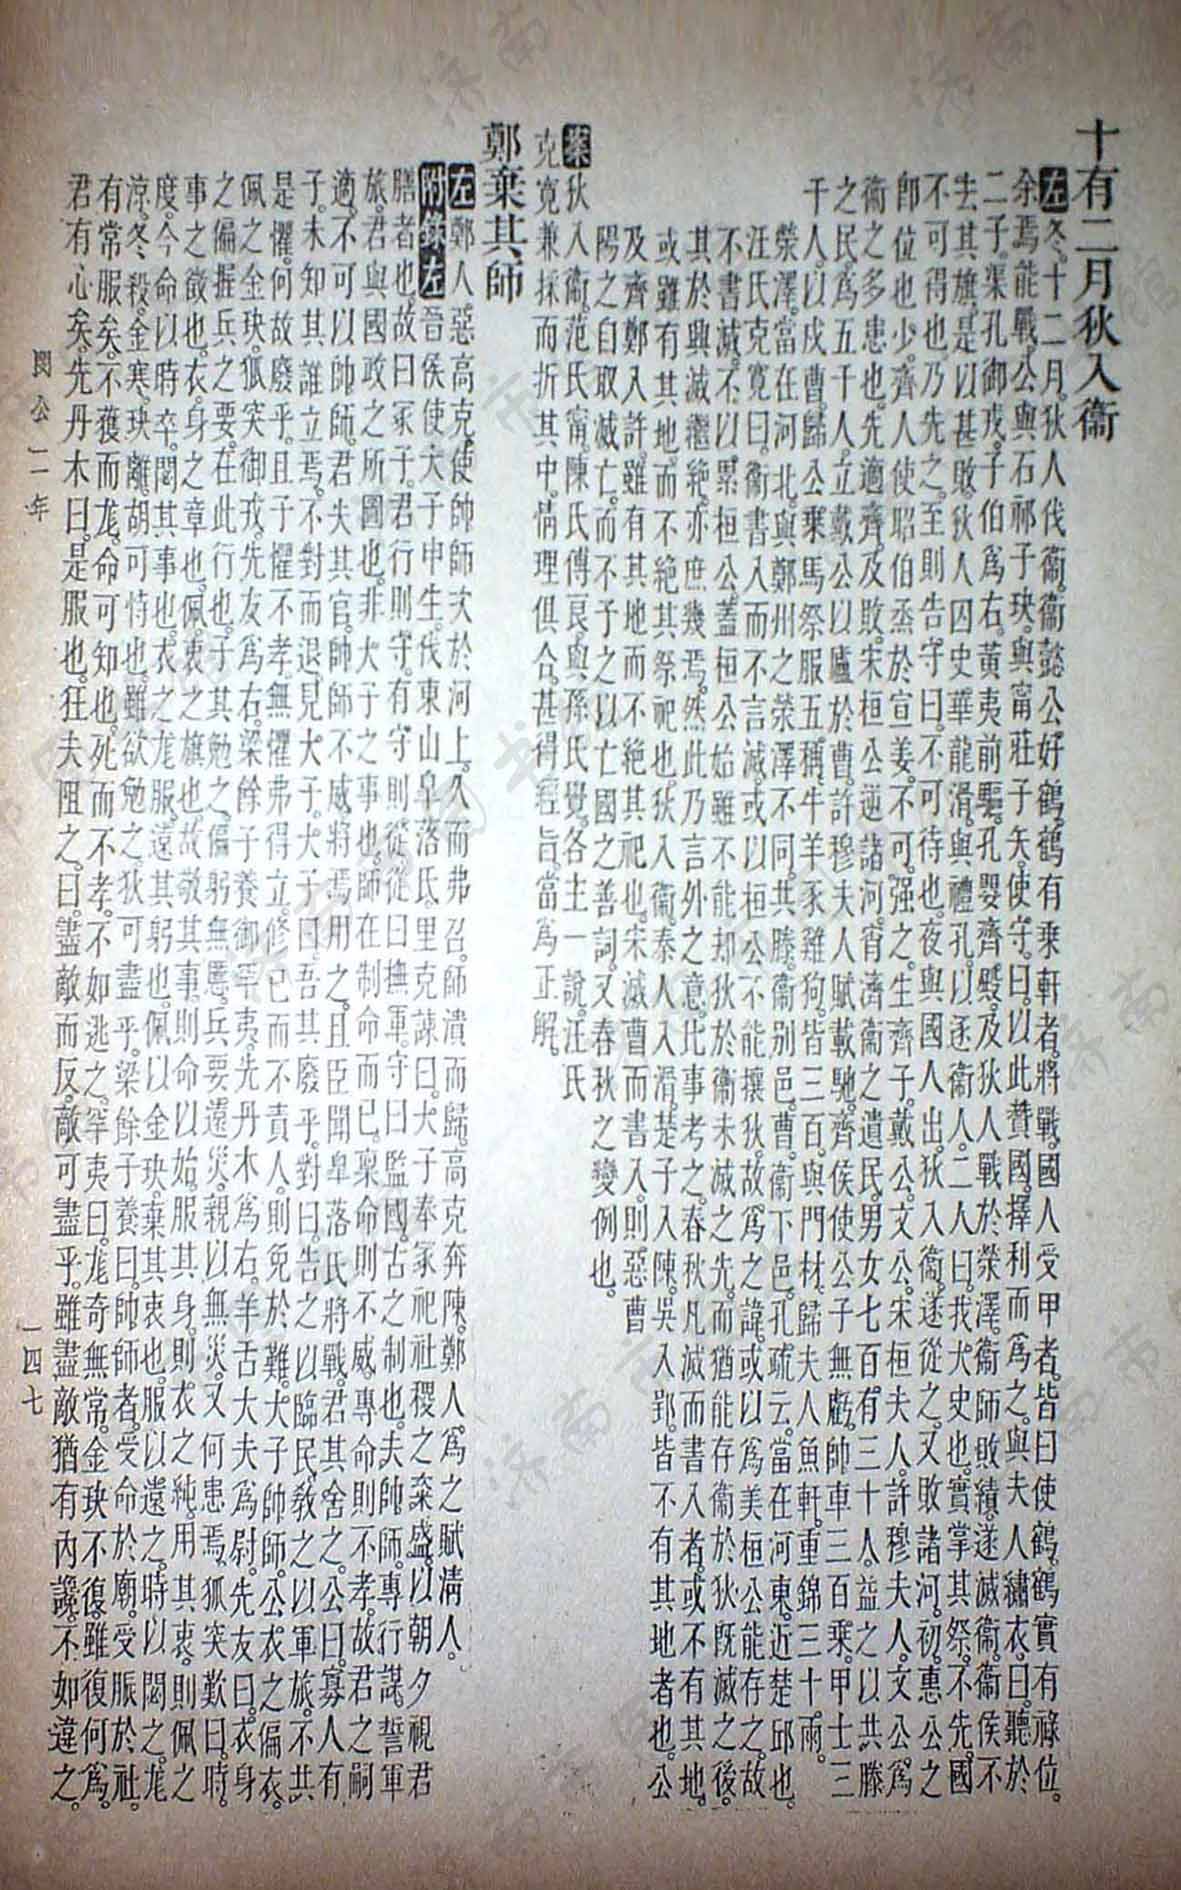 十有二月狄入衞
左冬。十二月。狄人伐衞。衞懿公。好鶴。鶴有乘軒者。將戰。國人受甲者。皆曰使鶴。鶴實有祿位。
余焉能戰。公與石祁子玦。與甯莊子矢。使守。曰。以此贊國。擇利而爲之。與夫人繡衣。曰。聽於
二子。渠孔御戎。子伯爲右。黃夷前驅。孔嬰齊殿。及狄人戰於滎澤。衞師敗績。遂滅衞。衞侯不
去其旗。是以甚敗。狄人囚史華龍滑。與禮孔。以逐衞人。二人曰。我大史也。實掌其祭。不先。國
不可得也。乃先之。至則告守曰。不可待也。夜與國人出。狄入衞。遂從之。又敗諸河。初惠公之
卽位也少。齊人使昭伯烝於宣姜。不可。强之。生齊子。戴公。文公。宋桓夫人。許穆夫人。文公。爲
衞之多患也。先適齊。及敗。宋桓公逆諸河。宵濟。衞之遺民。男女七百有三十人。益之以共滕
之民。爲五千人。立戴公以廬於曹。許穆夫人賦載馳。齊侯使公子無虧。帥車三百乘。甲士三
千人。以戍曹。歸公乘馬祭服五稱。牛羊豕雞狗。皆三百。與門材。歸夫人魚軒。重錦三十兩。
滎澤。當在河北。與鄭州之滎澤不同。共。滕。衞別邑。曹。衞下邑。孔疏云。當在河東。近楚邱也。
汪氏克寬曰。衞書入而不言滅。或以桓公不能攘狄。故爲之諱。或以爲美桓公能存之。故
不書滅。不以累桓公。蓋桓公始雖不能却狄於衞未滅之先。而猶能存衞於狄既滅之後
其於興滅繼絶。亦庶幾焉。然此乃言外之意。比事考之。春秋凡滅而書入者。或不有其地。
或雖有其地。而不絶其祭祀也。狄入衞。秦人入滑。楚子入陳。吳入郢。皆不有其地者也。公
及齊鄭入許。雖有其地而不絶其祀也。宋滅曹而書入。則惡曹
陽之自取滅亡。而不予之以亡國之善詞。又春秋之變例也。
案狄入衞。范氏甯。陳氏傅良。與孫氏覺。各主一說。汪氏
克寬兼採而折其中。情理俱合。甚得經旨。當爲正解。
鄭棄其師
左鄭人。惡高克。使帥師次於河上。久而弗召。師潰而歸。高克奔陳。鄭人。爲之賦淸人。
附錄左晉侯使大子申生。伐東山皐落氏。里克諫曰。大子奉冢祀社稷之粢盛。以朝夕視君
膳者也。故曰冢子。君行則守。有守則從。從曰撫軍。守曰監國。古之制也。夫帥師。專行謀。誓軍
旅。君與國政之所圖也。非大子之事也。師在制命而已。稟命則不威。專命則不孝。故君之嗣
適。不可以帥師。君失其官。帥師不威。將焉用之。且臣聞皐落氏將戰。君其舍之。公曰。寡人有
子。未知其誰立焉。不對而退。見大子。大子曰。吾其廢乎。對曰。告之以臨民。敎之以軍旅。不共
是懼。何故廢乎。且子懼不孝。無懼弗得立。修己而不責人。則免於難。大子帥師。公衣之偏衣。
佩之金玦。狐突御戎。先友爲右。梁餘子養御罕夷。先丹木爲右。羊舌大夫爲尉。先友曰。衣身
之偏。握兵之要。在此行也。子其勉之。偏躬無慝。兵要遠災。親以無災。又何患焉。狐突歎曰。時。
事之徵也。衣。身之章也。佩。衷之旗也。故敬其事。則命以始。服其身。則衣之純。用其衷。則佩之
度。今命以時卒。閟其事也。衣之尨服。遠其躬也。佩以金玦。棄其衷也。服以遠之。時以閟之。尨
涼。冬殺。金寒。玦離。胡可恃也。雖欲勉之。狄可盡乎。梁餘子養曰。帥師者。受命於廟。受脤於社。
有常服矣。不獲而尨。命可知也。死而不孝。不如逃之。罕夷曰。尨奇無常。金玦不復。雖復何爲。
君有心矣。先丹木曰。是服也。狂夫阻之。曰。盡敵而反。敵可盡乎。雖盡敵。猶有內讒。不如違之。
閔公 二年
一四七